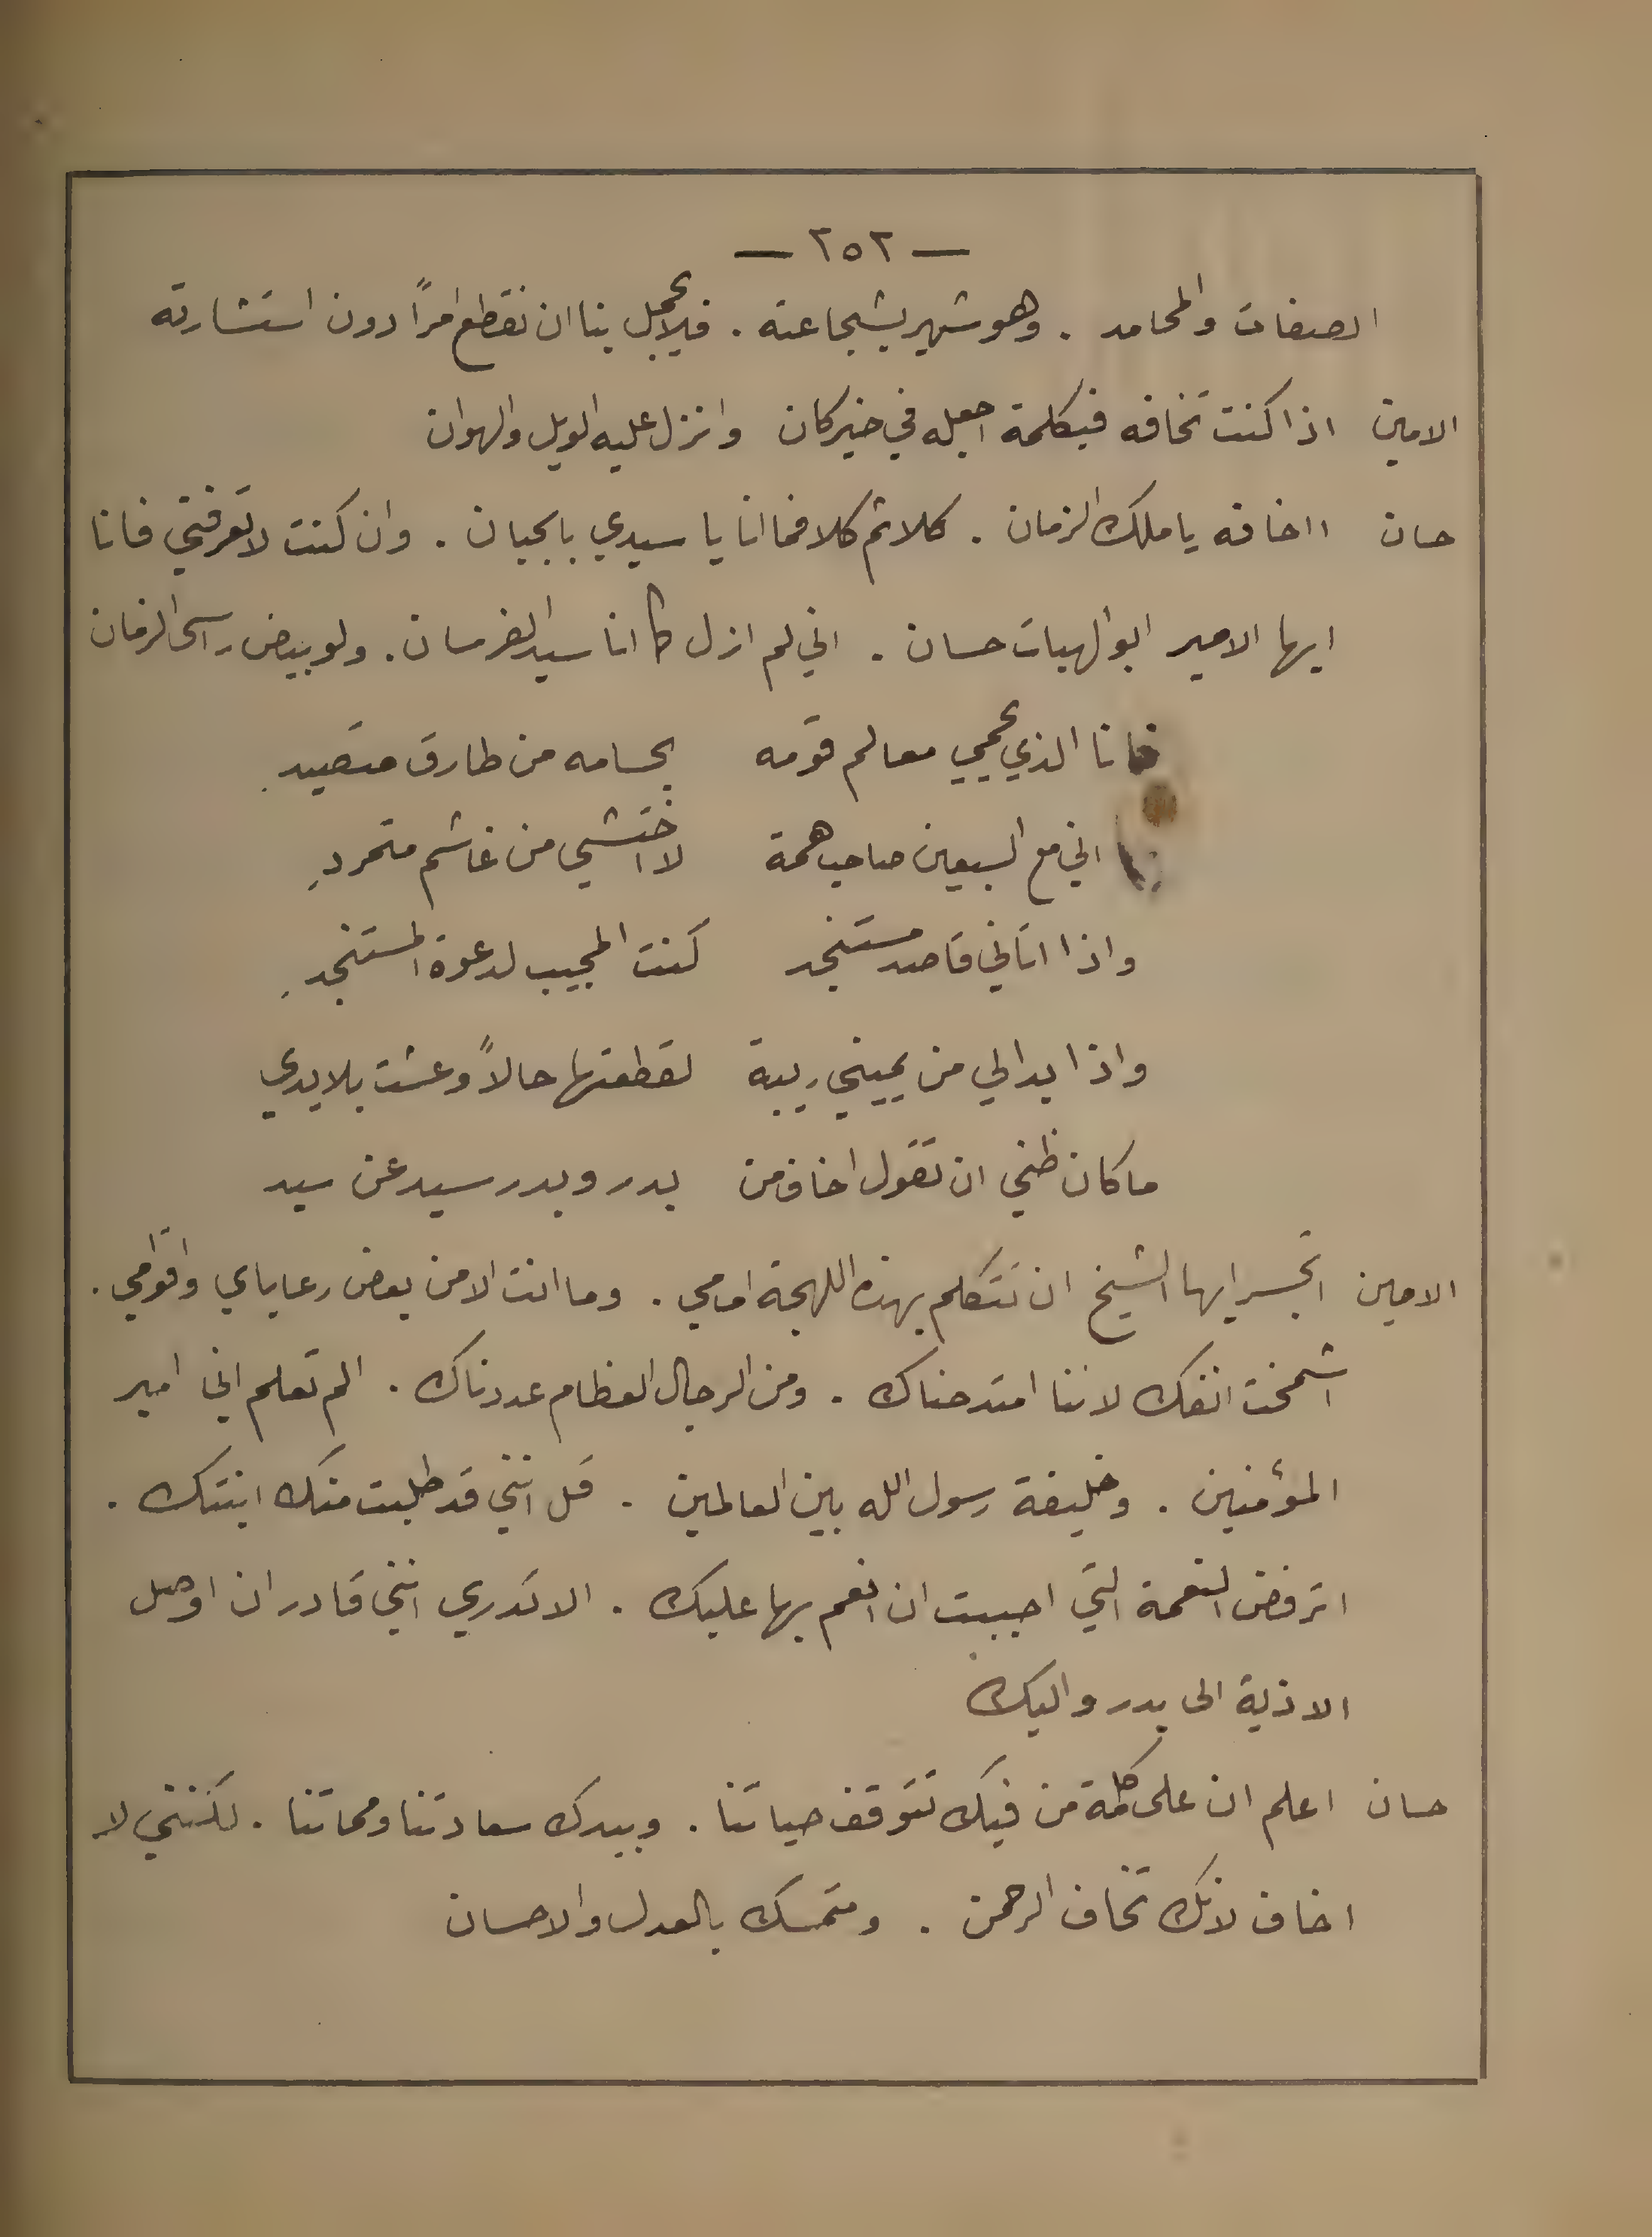 — ٢٥٢ —
الصفات والمحامد . وهو شهير بشجاعته . فلا يجمل بنا ان نقطع امرًا دون استشارته
الامين اذا كنت تخافه فبكلمة اجعله في خبر كان وانزل عليه الويل والهوان
حسان ااخافه يا ملك الزمان . كلا ثم كلا فما انا يا سيدي بالجبان . وان كنت لا تعرفني فانا
ايها الامير ابو الهبات حسان . اني لم ازل كما انا سيد الفرسان . ولو بيض راسي الزمان
فانا الذي يحمي معالم قومه بحسامه من طارق متصيدِ
اني مع السبعين صاحب همة لا اختشي من غاشم متمردِ
واذا اتاني قاصد مستنجد كنت المجيب لدعوة المستنجدِ
واذا بدا لي من يميني ريبة لقطعتها حالاً وعشت بلا يدي
ما كان ظني ان تقول اخاف من بدر وبدر سيد عن سيد
الامين اتجسر ايها الشيخ ان تتكلم بهذه اللهجة امامي . وما انت الا من بعض رعاياي واقوامي .
اشمخت انفك لاننا امتدحناك . ومن الرجال العظام عددناك . الم تعلم اني امير
المؤمنين . وخليفة رسول الله بين العالمين . قل انني قد طلبت منك ابنتك .
اترفض النعمة التي احببت ان انعم بها عليك . الا تدري انني قادر ان اوصل
الاذية الى بدر واليك
حسان اعلم ان على كلمة من فيك تتوقف حياتنا . وبيدك سعادتنا ومماتنا . لكنني لا
اخاف لانك تخاف الرحمن . ومتمسك بالعدل والاحسان